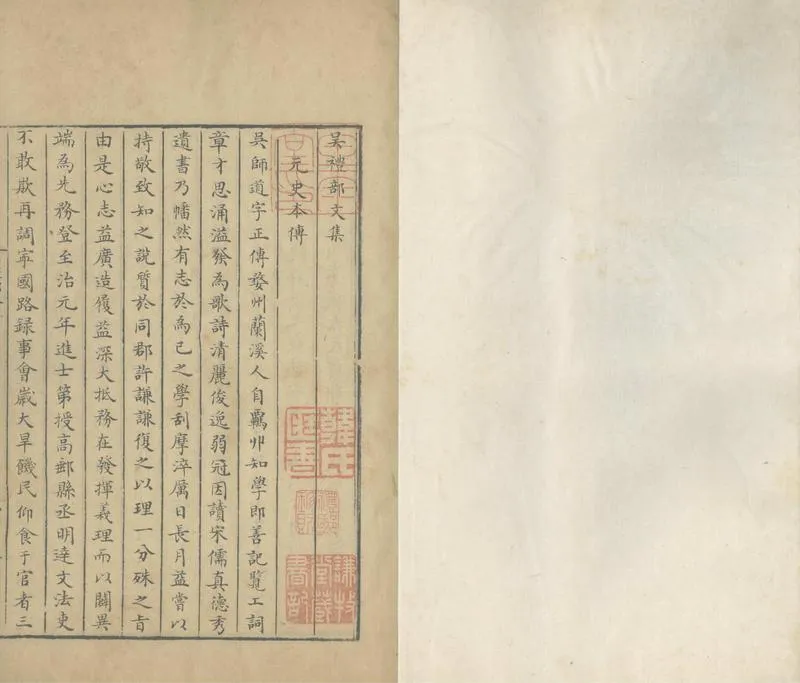 吳禮部文集
元史本傳
吳師道字正傳婺州蘭溪人自羈丱知學即善記覽工詞
章才思涌溢發為歌詩清麗俊逸弱冠因讀宋儒真德秀
遺書乃幡然有志於為己之學刮摩淬厲日長月益嘗以
持敬致知之說質於同郡許謙謙復之以理一分殊之旨
由是心志益廣造履益深大抵務在發揮義理而以闢異
端為先務登至治元年進士第授高郵縣丞明達文法吏
不敢欺再調寧國路錄事會歲大旱饑民仰食于官者三
韓氏
藏書
謙牧
堂藏
書記